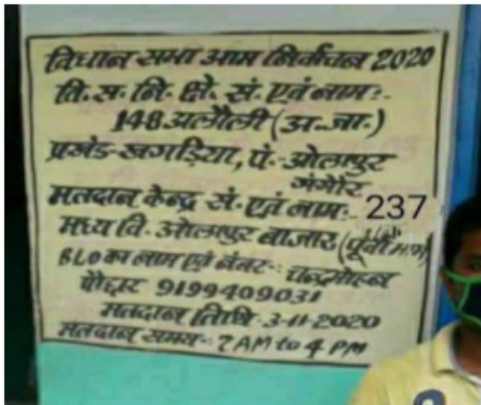 विधान सभा आम निर्वाचन 2020
वि. स. नि. क्षे. सं. एवं नाम :-
148 अलौली (अ.जा.)
प्रखंड-खगड़िया, पं.-ओलापुर
गंगौर
मतदान केन्द्र सं. एवं नाम:- 237
मध्य वि. ओलापुर बाजार (पूर्वी भाग)
BLO का नाम एवं नंबर-: चन्द्रमोहन
पौद्दार 9199409031
मतदान तिथि-3-11-2020
मतदान समय-: 7 AM to 4 PM